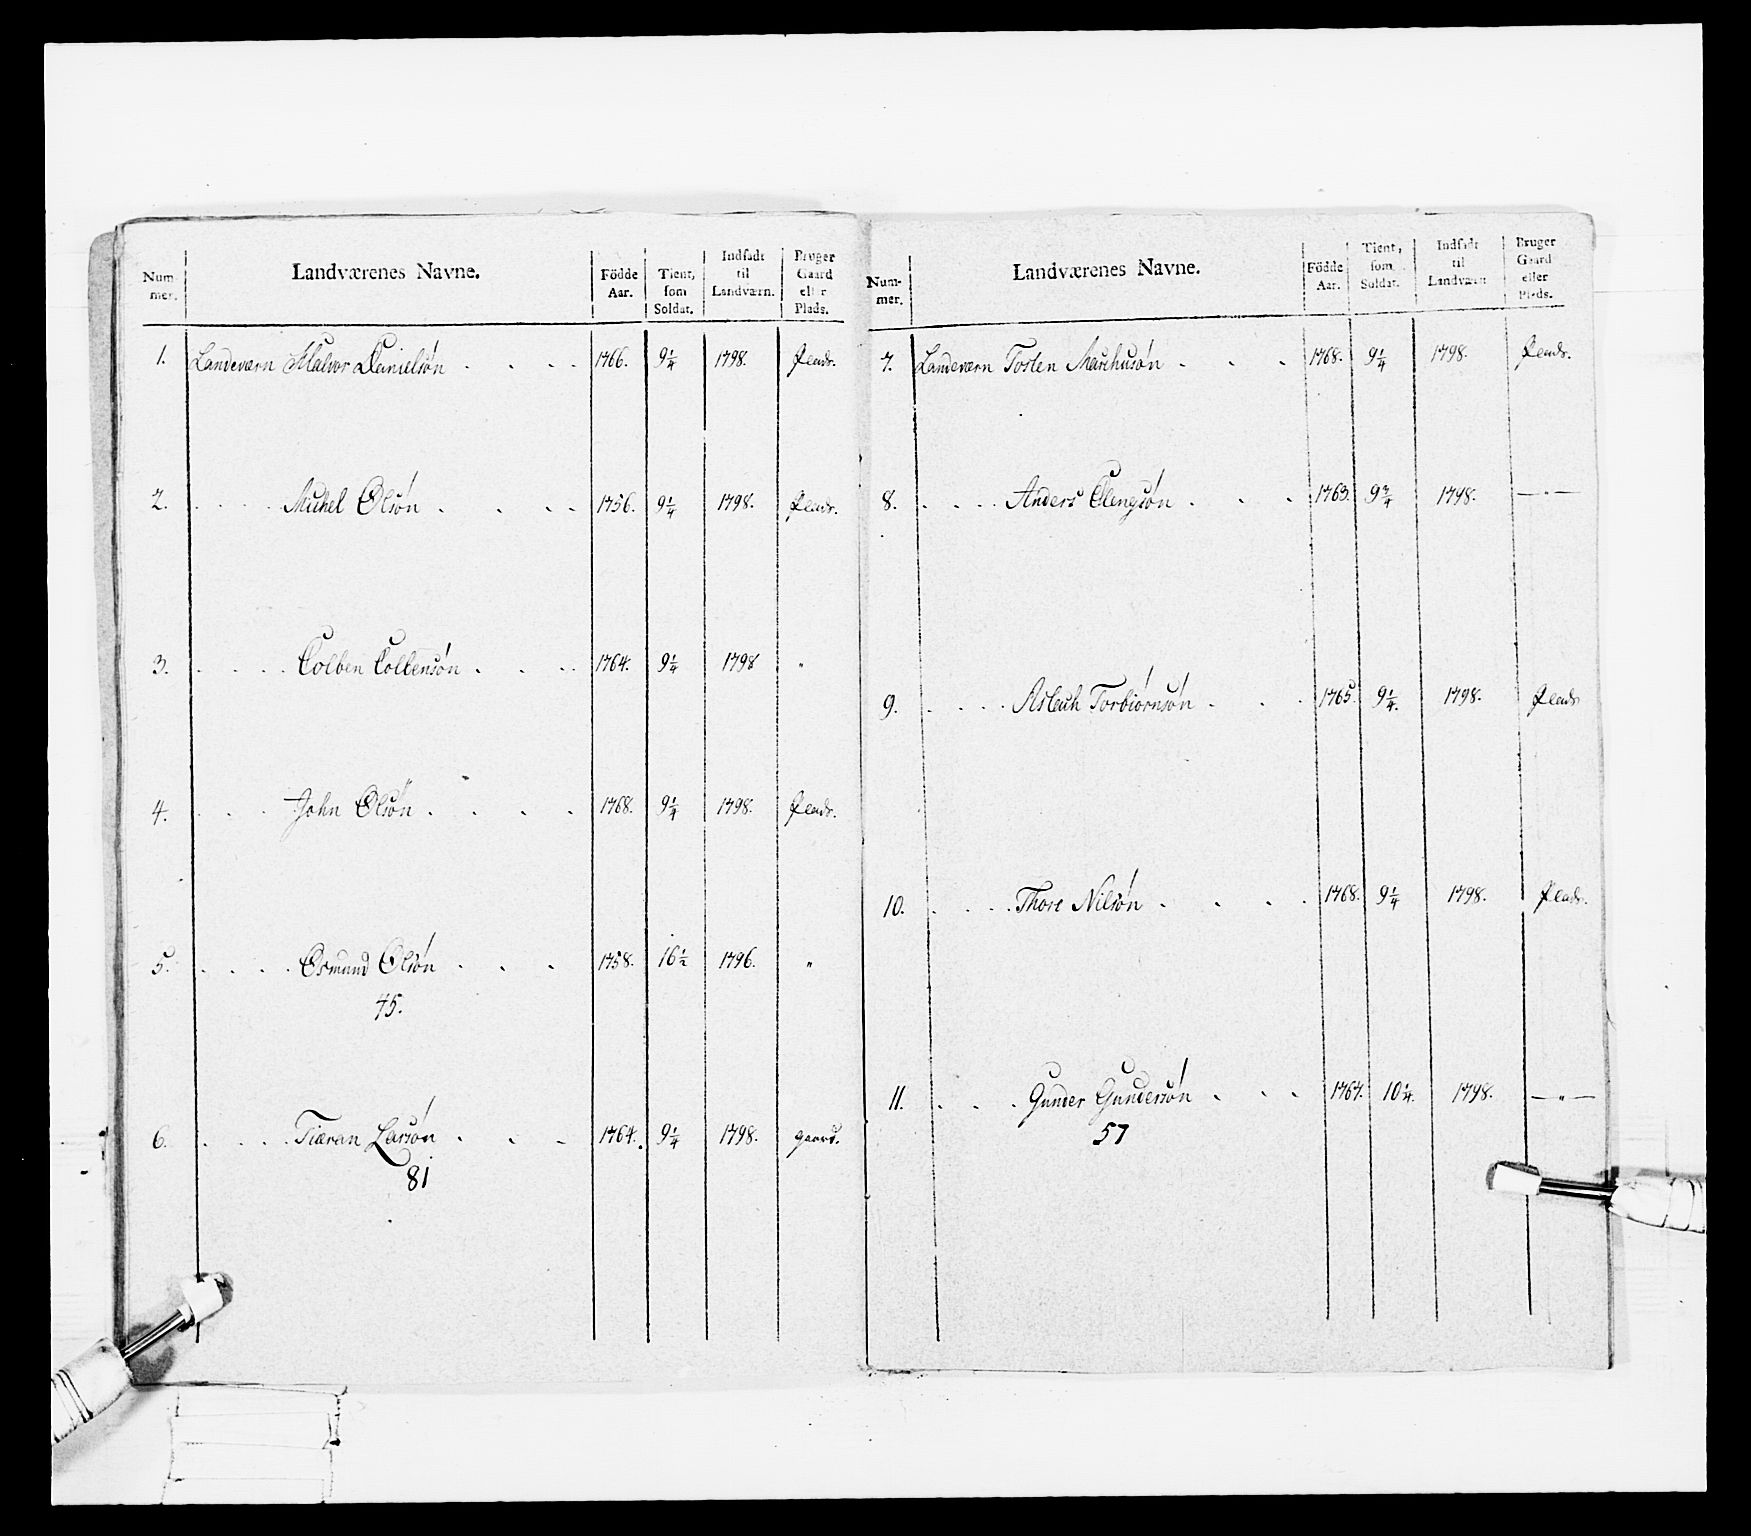 Num-
mer.
Landværenes Navne.
Födde
Aar.
Tient,
som
Soldat.
Indfadt
til
Landværn.
Bruger
Gaard
eller
Plads.
1. Landeværn Halvor Danielsön . . . . 1766. 9 1/4 1798. Plads.
2. . . . . Michel Olsön . . . . 1756. 9 1/4 1798. Plads.
3. . . . . Colben Colbensön . . . . 1764. 9 1/4 1798 "
4. . . . John Olsön . . . . 1768. 9 1/4 1798. Plads.
5. . . . . Osmund Olsön . . . 1758. 16 1/2 1796. "
45.
6. . . . . Tiæran Larsön . . . 1764. 9 1/4 1798. gaard.
81
Num-
mer.
Landværenes Navne.
Födde
Aar.
Tient,
som
Soldat.
Indfadt
til
Landværn
Bruger
Gaard
eller
Plads.
7. Landeværn Tosten . . . 1768. 9 1/4 1798. Plads.
8. . . . . Anders Clengsön . . . 1763. 9 3/4 1798. — " —
9. . . . . Aslach Torbiörnsön . . . 1765. 9 1/4. 1798. Plads
10. . . . . Thore Nilsön . . . . 1768. 9 1/4 1798. Plads.
11. . . . Gunder Gundersön . . . 1767. 10 1/4. 1798. — " —
57